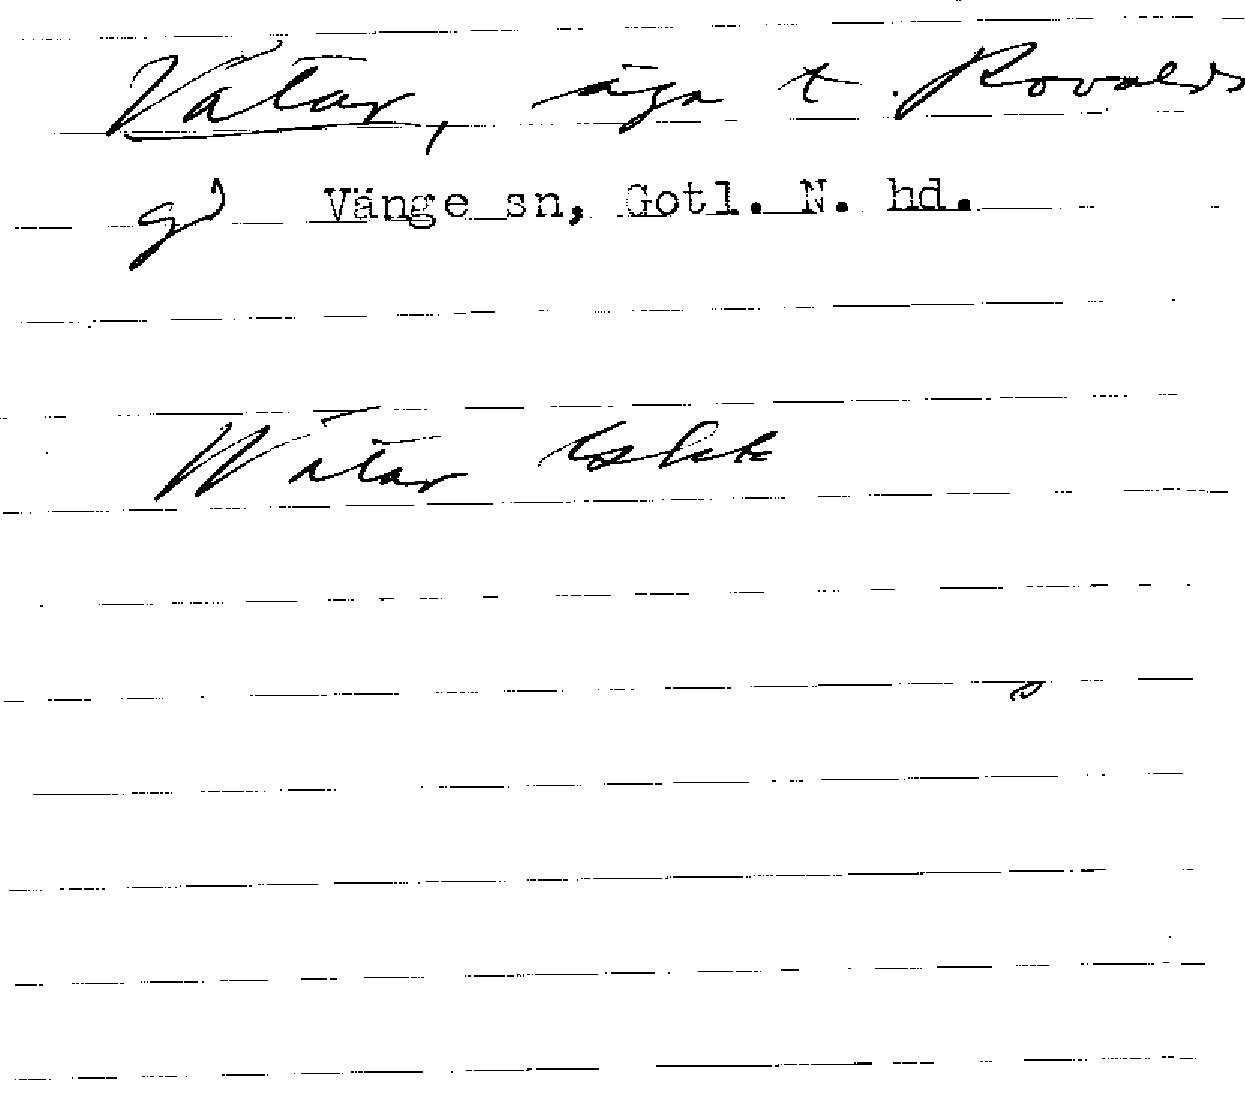 Vatar, äga t. Rovalds
gd Vänge sn, Gotl. N. hd.
Watar lskk